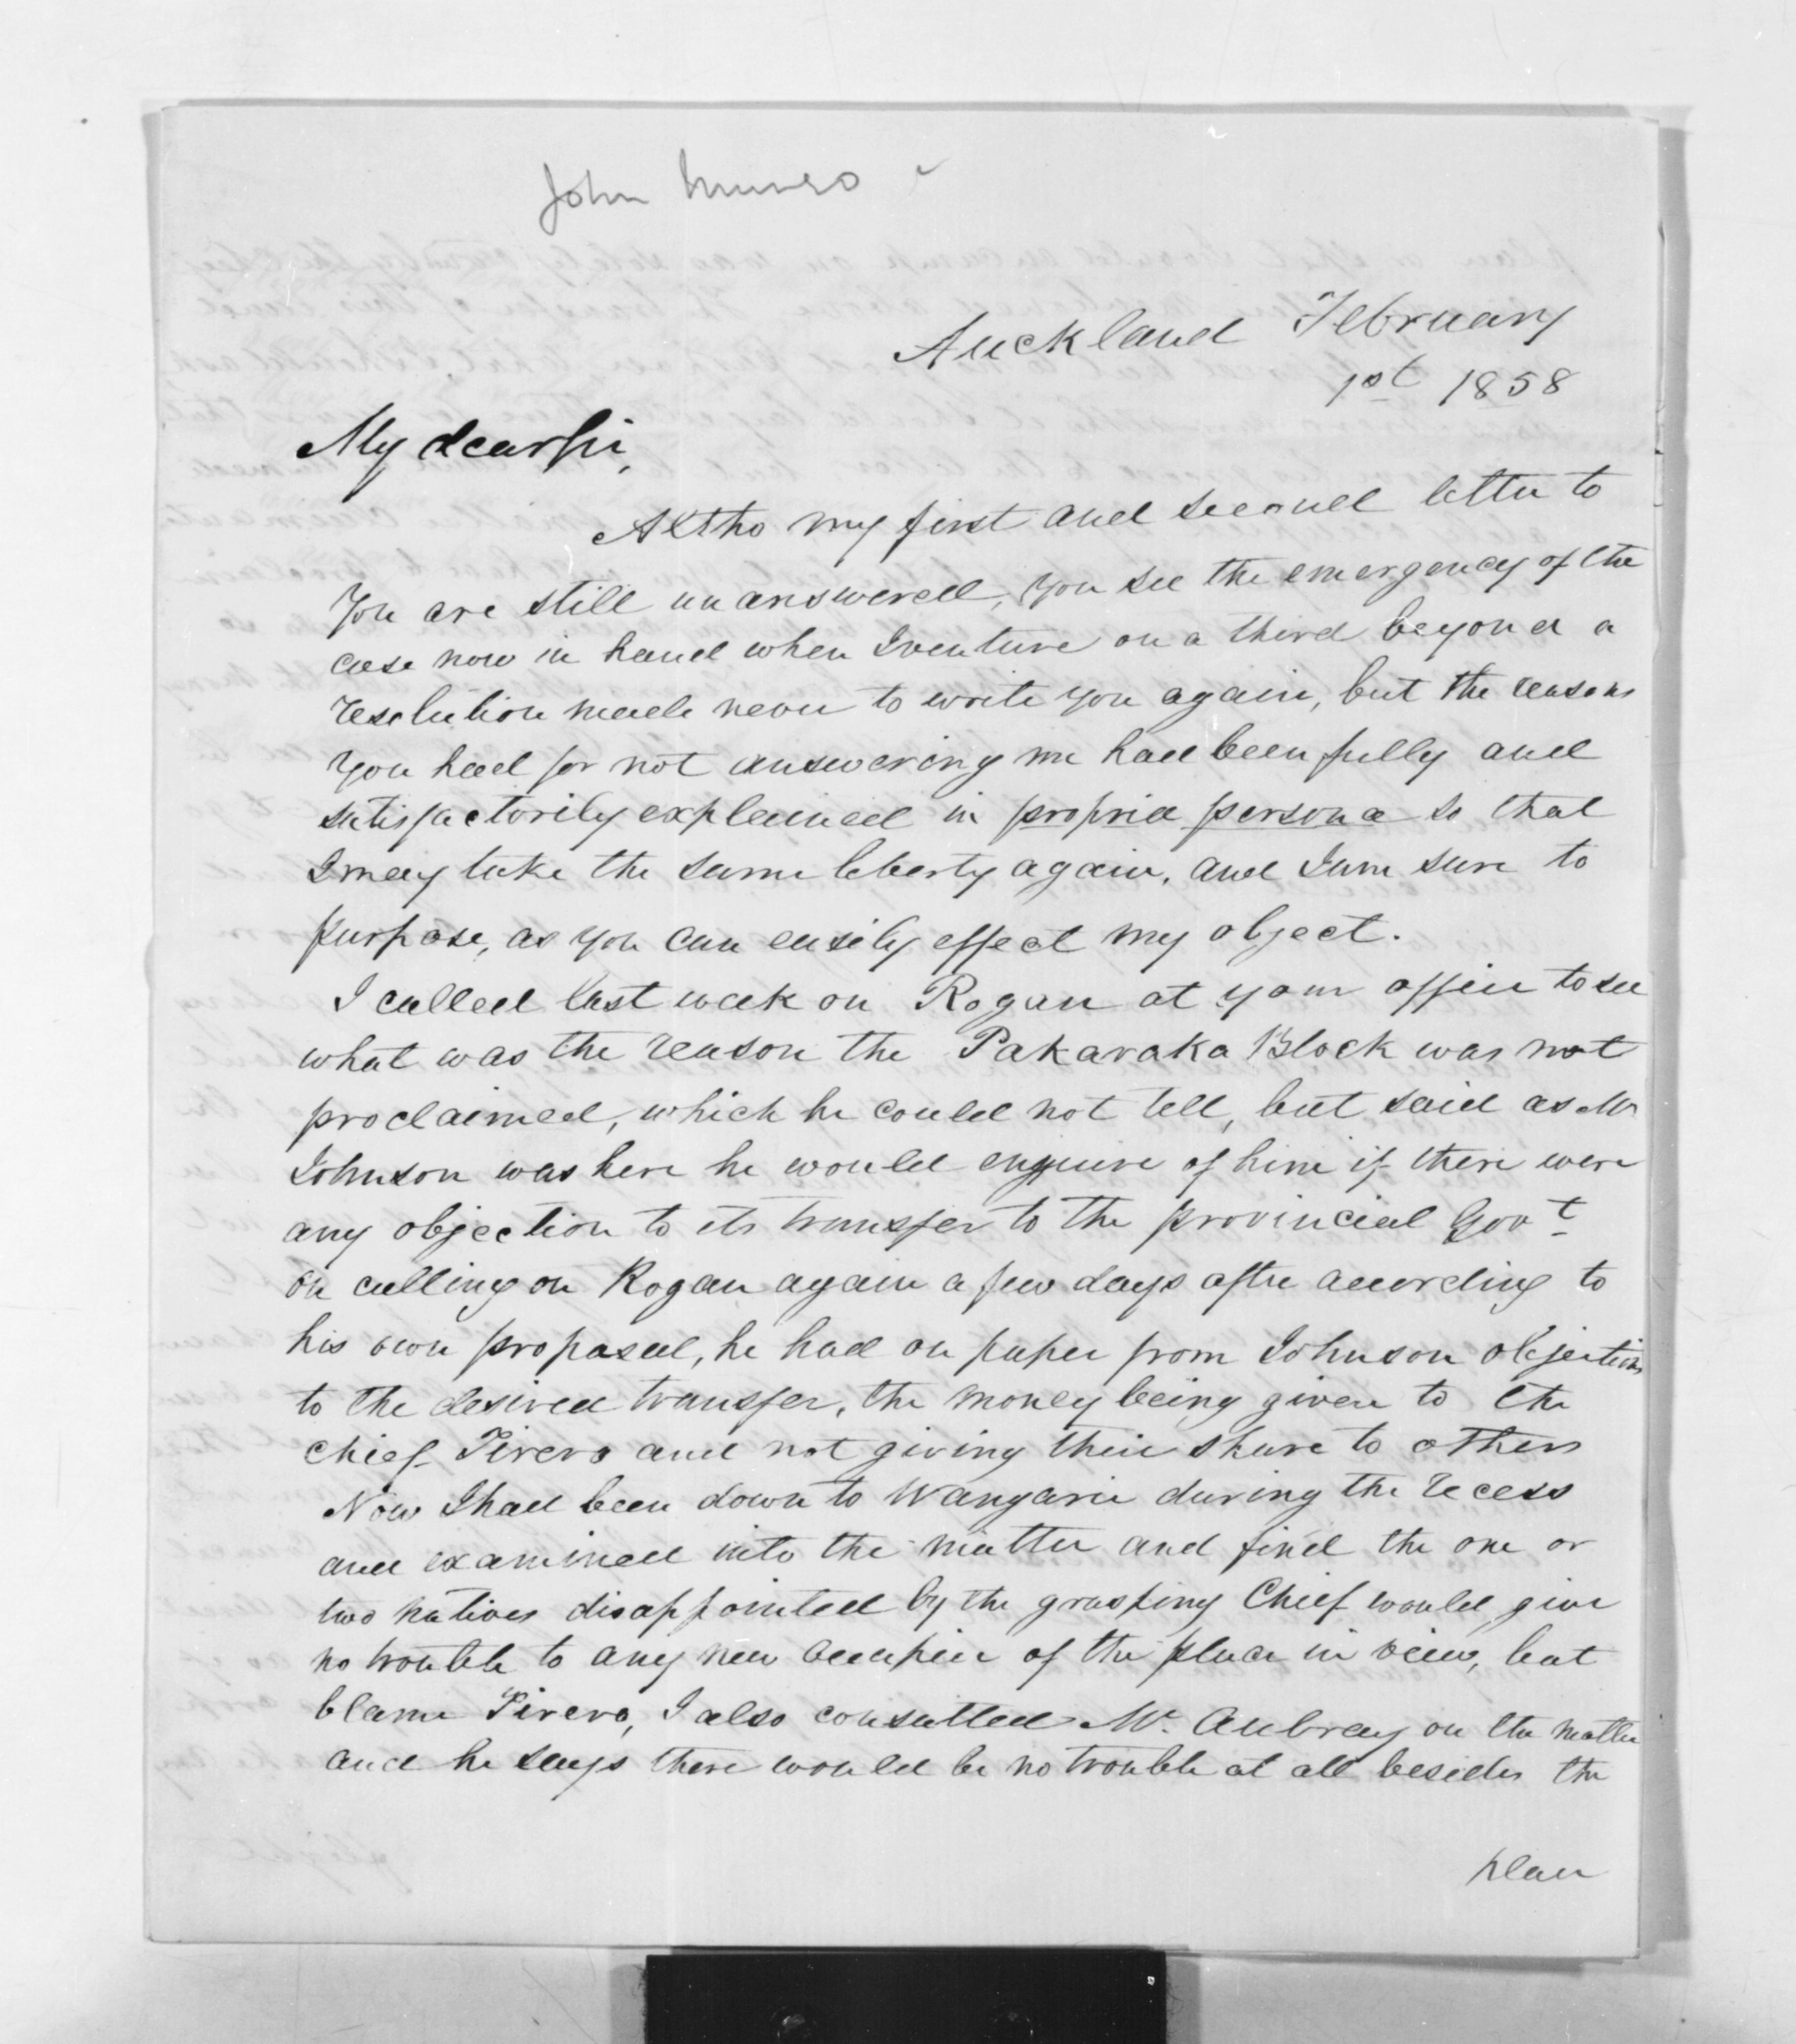 John Munro
Auckland February
1st 1858
My dear Sir,
Altho my first and second letter to
You are still unanswered, you see the emergency of the
case now in hand when I venture on a third beyond a
resolution made never to write you again, but the reasons
you had for not answering me had been fully and
satisfactorily explained in propria persona so that
I may take the same liberty again, and I am sure to
purpose, as you can easily effect my object.
I called last week on Rogan at your office to see
what was the reason the Pakaraka Block was not
proclaimed, which he could not tell, but said as Mr
Johnson was here he would enquire of him if there were
any objection to its transfer to the provincial Govt
on calling on Rogan again a few days after according to
his own proposal, he had on paper from Johnson objections
to the desired transfer, the money being given to the
chief Tirero and not giving their share to others
Now I had been down to Wangarei during the recess
and examined into the matter and find the one or
two natives disappointed by the grasping Chief would give
no trouble to any new occupier of the place in view, but
blame Tirero, I also consulted Mr. Aubrey on the matter
and he says there would be no trouble at all besides the
plan